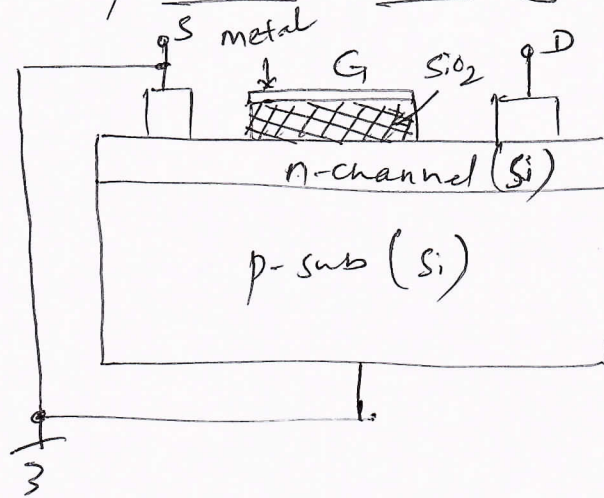 S
metal
G
SiO2
D
n-channel (Si)
p-sub (Si)